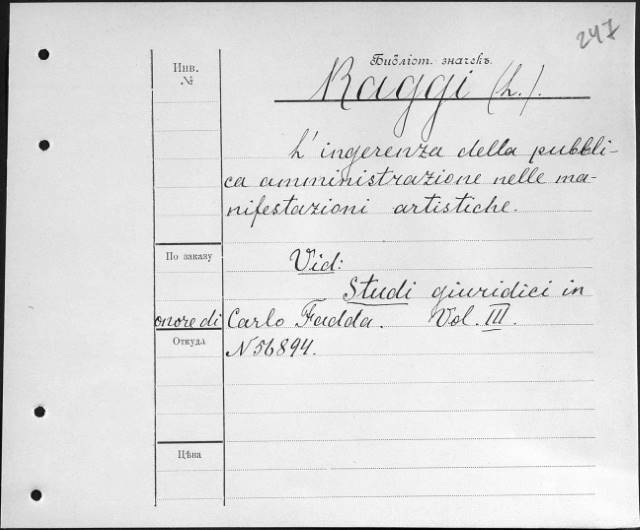 247
Библіот. значекъ.
Инв.
№
Raggi (L.).
L'ingerenza della pubbli-
ca amministrazione nelle ma-
nifestazioni artistiche.
По заказу
Vid:
Studi giuridici in
onore di Carlo Fadda. Vol. III.
Откуда
N 56894.
Цѣна